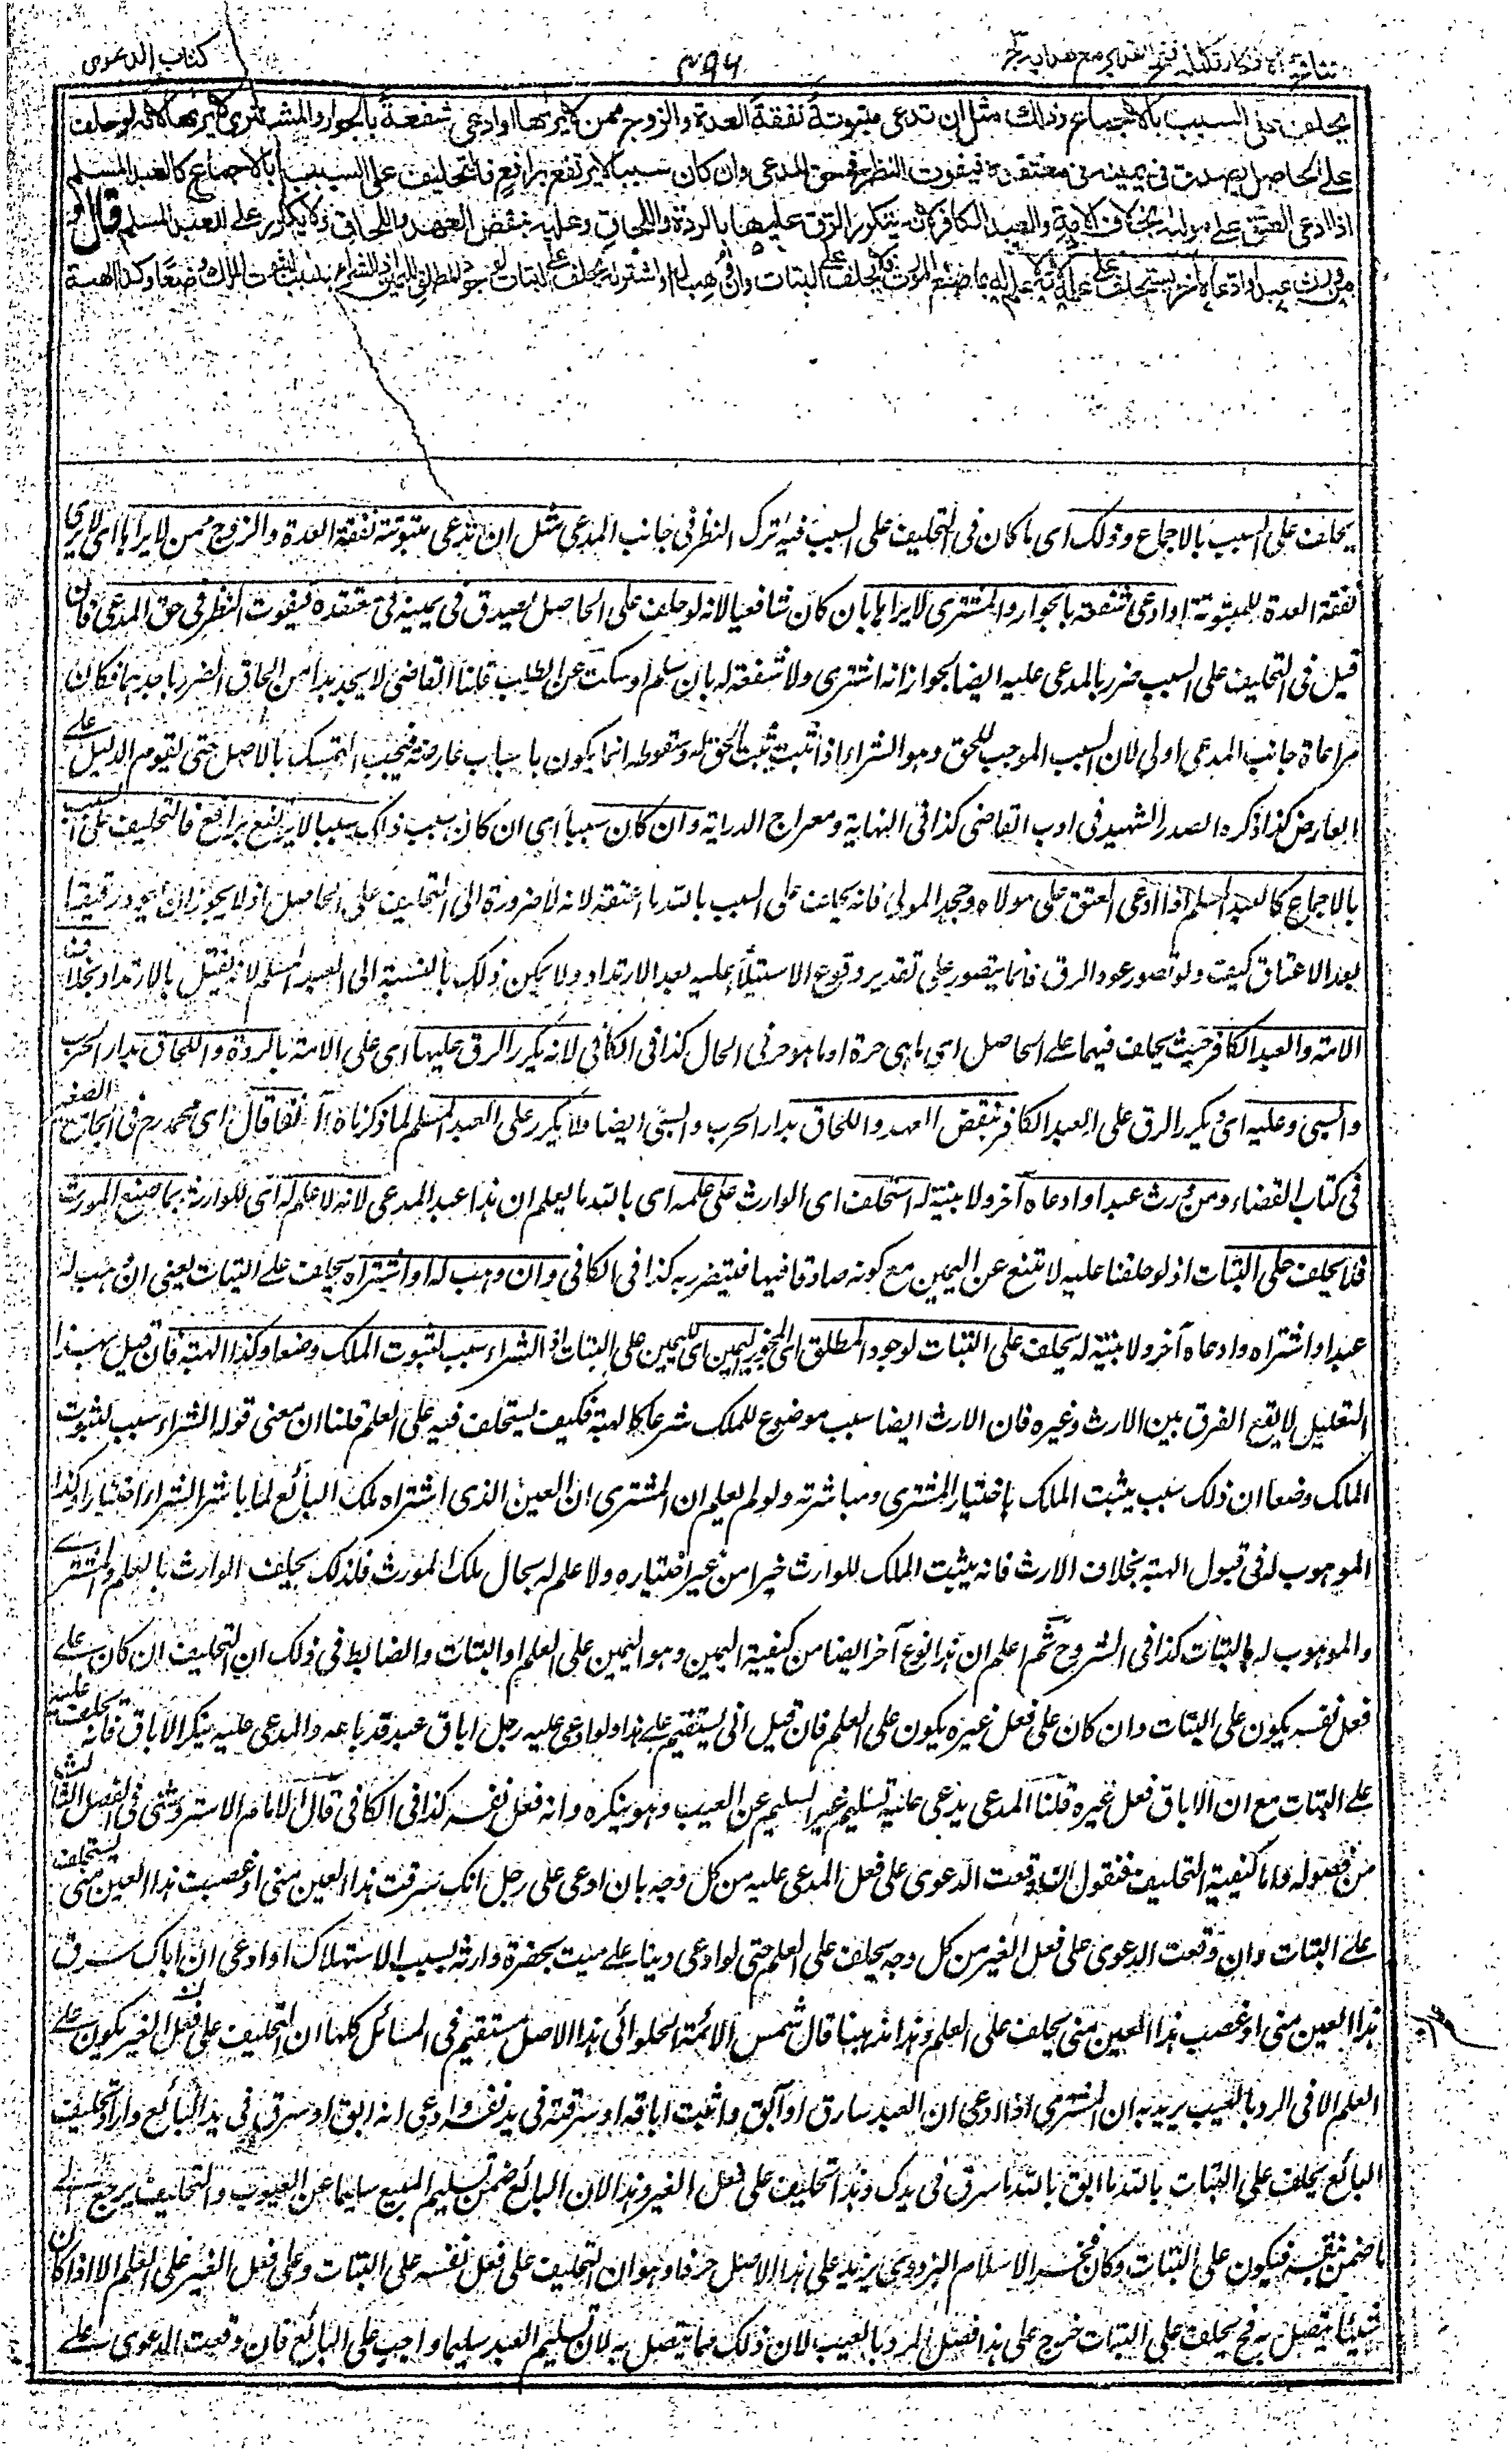 نتائج الافكار تكملة فتح القدير مع هدايه ج٣
٣٩٦
كتاب الدعوى
يحلف على السبب بالاجماع وذلك مثل ان تدعى مبتوتة نفقة العدة والزوج ممن لا يراها او ادعى شفعة بالجوار والمشترى لا يراها لانه لو حلف
على الحاصل يصدق فى يمينه فى معتقده فيفوت النظر فى حق المدعى وان كان سببا لا يرتفع برافع فالتحليف على السبب بالاجماع كالعبد المسلم
اذا ادعى العتق على مولاه بخلاف الامة والعبد الكافر لانه يتكرر الرق عليها بالردة واللحاق وعليه بنقض العهد واللحاق ولا يتكرر على العبد المسلم قال و
من ورث عبدا وادعاه آخر يستحلف على علمه لانه لا علم له بما صنع المورث فلا يحلف على البتات وان وهب له او اشتراه يحلف على البتات لوجود المطلق لليمين اذ الشراء سبب لثبوت الملك وضعا وكذا الهبة
يحلف على السبب بالاجماع وذلك اى ما كان فى التحليف على السبب فيه ترك النظر فى جانب المدعى مثل ان تدعى مبتوتة نفقة العدة والزوج ممن لا يراها اى لا يرى
نفقة العدة للمبتوتة او ادعى شفعة بالجوار والمشترى لا يراها بان كان شافعيا لانه لو حلف على الحاصل يصدق فى يمينه فى معتقده فيفوت النظر فى حق المدعى فان
قيل فى التحليف على السبب ضرر بالمدعى عليه ايضا لجواز انه اشترى ولا شفعة له بان سلم او سكت عن الطلب قلنا القاضى لا يجد بدا من الحاق الضرر باحدهما فكان
مراعاة جانب المدعى اولى لان السبب الموجب للحق وهو الشراء اذا ثبت يثبت الحق له وسقوطه انما يكون باسباب عارضة فيجب التمسك بالاصل حتى يقوم الدليل على
العارض كذا ذكره الصدر الشهيد فى ادب القاضى كذا فى النهاية ومعراج الدراية وان كان سببا اى ان كان سبب ذلك سببا لا يرتفع برافع فالتحليف على السبب
بالاجماع كالعبد المسلم اذا ادعى العتق على مولاه وجحد المولى فانه يحلف على السبب بالله ما اعتقه لانه لا ضرورة الى التحليف على الحاصل اذ لا يجوز ان يعود رقيقا
بعد الاعتاق كيف ولو تصور عود الرق فانما يتصور على تقدير وقوع الاستيلاء عليه بعد الارتداد ولا يمكن ذلك بالنسبة الى العبد المسلم لانه يقتل بالارتداد بخلاف
الامة والعبد الكافر حيث يحلف فيهما على الحاصل اى ما هى حرة او ما هو حر فى الحال كذا فى الكافى لانه يكرر الرق عليها اى على الامة بالردة واللحاق بدار الحرب
والسبى وعليه اى يكرر الرق على العبد الكافر بنقض العهد واللحاق بدار الحرب والسبى ايضا ولا يكرر على العبد المسلم لما ذكرناه آنفا قال اى محمد رح فى الجامع الصغير
فى كتاب القضاء ومن ورث عبدا وادعاه آخر ولا بينة له استحلف اى الوارث على علمه اى بالله ما يعلم ان هذا عبد المدعى لانه لا علم له اى للوارث بما صنع المورث
فلا يحلف على البتات اذ لو حلفنا عليه لامتنع عن اليمين مع كونه صادقا فيها فيتضرر به كذا فى الكافى وان وهب له او اشتراه يحلف على البتات يعنى ان وهب له
عبد او اشتراه وادعاه آخر ولا بينة له يحلف على البتات لوجود المطلق اى المجوز لليمين اى لليمين على البتات اذ الشراء سبب لثبوت الملك وضعا وكذا الهبة فان قيل بهذا
التعليل لا يقع الفرق بين الارث وغيره فان الارث ايضا سبب موضوع للملك شرعا كالهبة فكيف يستحلف فيه على العلم قلنا ان معنى قوله الشراء سبب لثبوت
الملك وضعا ان ذلك سبب يثبت الملك باختيار المشترى ومباشرته ولو لم يعلم ان المشترى ان العين الذى اشتراه ملك البائع لما باشر الشراء اختيارا وكذا
الموهوب له فى قبول الهبة بخلاف الارث فانه يثبت الملك للوارث جبرا من غير اختياره ولا علم له بحال ملك المورث فلذلك يحلف الوارث بالعلم والمشترى
والموهوب له بالبتات كذا فى الشروح ثم اعلم ان هذا نوع آخر ايضا من كيفية اليمين وهو اليمين على العلم او البتات والضابط فى ذلك ان التحليف ان كان على
فعل نفسه يكون على البتات وان كان على فعل غيره يكون على العلم فان قيل انى يستقيم على هذا ولو ادعى عليه رجل اباق عبد قد باعه والمدعى عليه ينكر الاباق فانه يحلف عليه
على البتات مع ان الاباق فعل غيره قلنا المدعى يدعى عليه تسليم غير السليم عن العيب وهو ينكره وانه فعل نفسه كذا فى الكافى قال الامام الاستروشنى فى الفصل الثالث
من فصوله واما كيفية التحليف فنقول ان وقعت الدعوى على فعل المدعى عليه من كل وجه بان ادعى على رجل انك سرقت هذا العين منى او غصبت هذا العين منى يستحلف
على البتات وان وقعت الدعوى على فعل الغير من كل وجه يحلف على العلم حتى لو ادعى دينا على ميت بحضرة وارثه بسبب الاستهلاك او ادعى ان اباك سرق
هذا العين منى او غصب هذا العين منى يحلف على العلم وهذا مذهبنا قال شمس الائمة الحلوائى هذا الاصل مستقيم فى المسائل كلها ان التحليف على فعل الغير يكون على
العلم الا فى الرد بالعيب يريد به ان المشترى اذا ادعى ان العبد سارق او آبق واثبت اباقه او سرقته فى يد نفسه وادعى انه ابق او سرق فى يد البائع واراد تحليف
البائع يحلف على البتات بالله ما ابق بالله ما سرق فى يدك وهذا تحليف على فعل الغير وهذا لان البائع ضمن تسليم المبيع سليما عن العيوب والتحليف يرجع الى
ما ضمن بنفسه فيكون على البتات وكان فخر الاسلام البزدوى يزيد على هذا الاصل حرفا وهو ان التحليف على فعل نفسه على البتات وعلى فعل الغير على العلم الا اذا كان
شيئا يتصل به فح يحلف على البتات خرج على هذا فصل الرد بالعيب لان ذلك مما يتصل به لان تسليم العبد سليما واجب على البائع فان وقعت الدعوى على